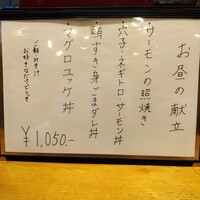 お昼の献立
サーモンの照焼き
穴子・ネギトロ・サーモン丼
鯖すき身ごまダレ丼
マグロユッケ丼
ご飯みそ汁
お好きなだけどうぞ
￥1,050.-